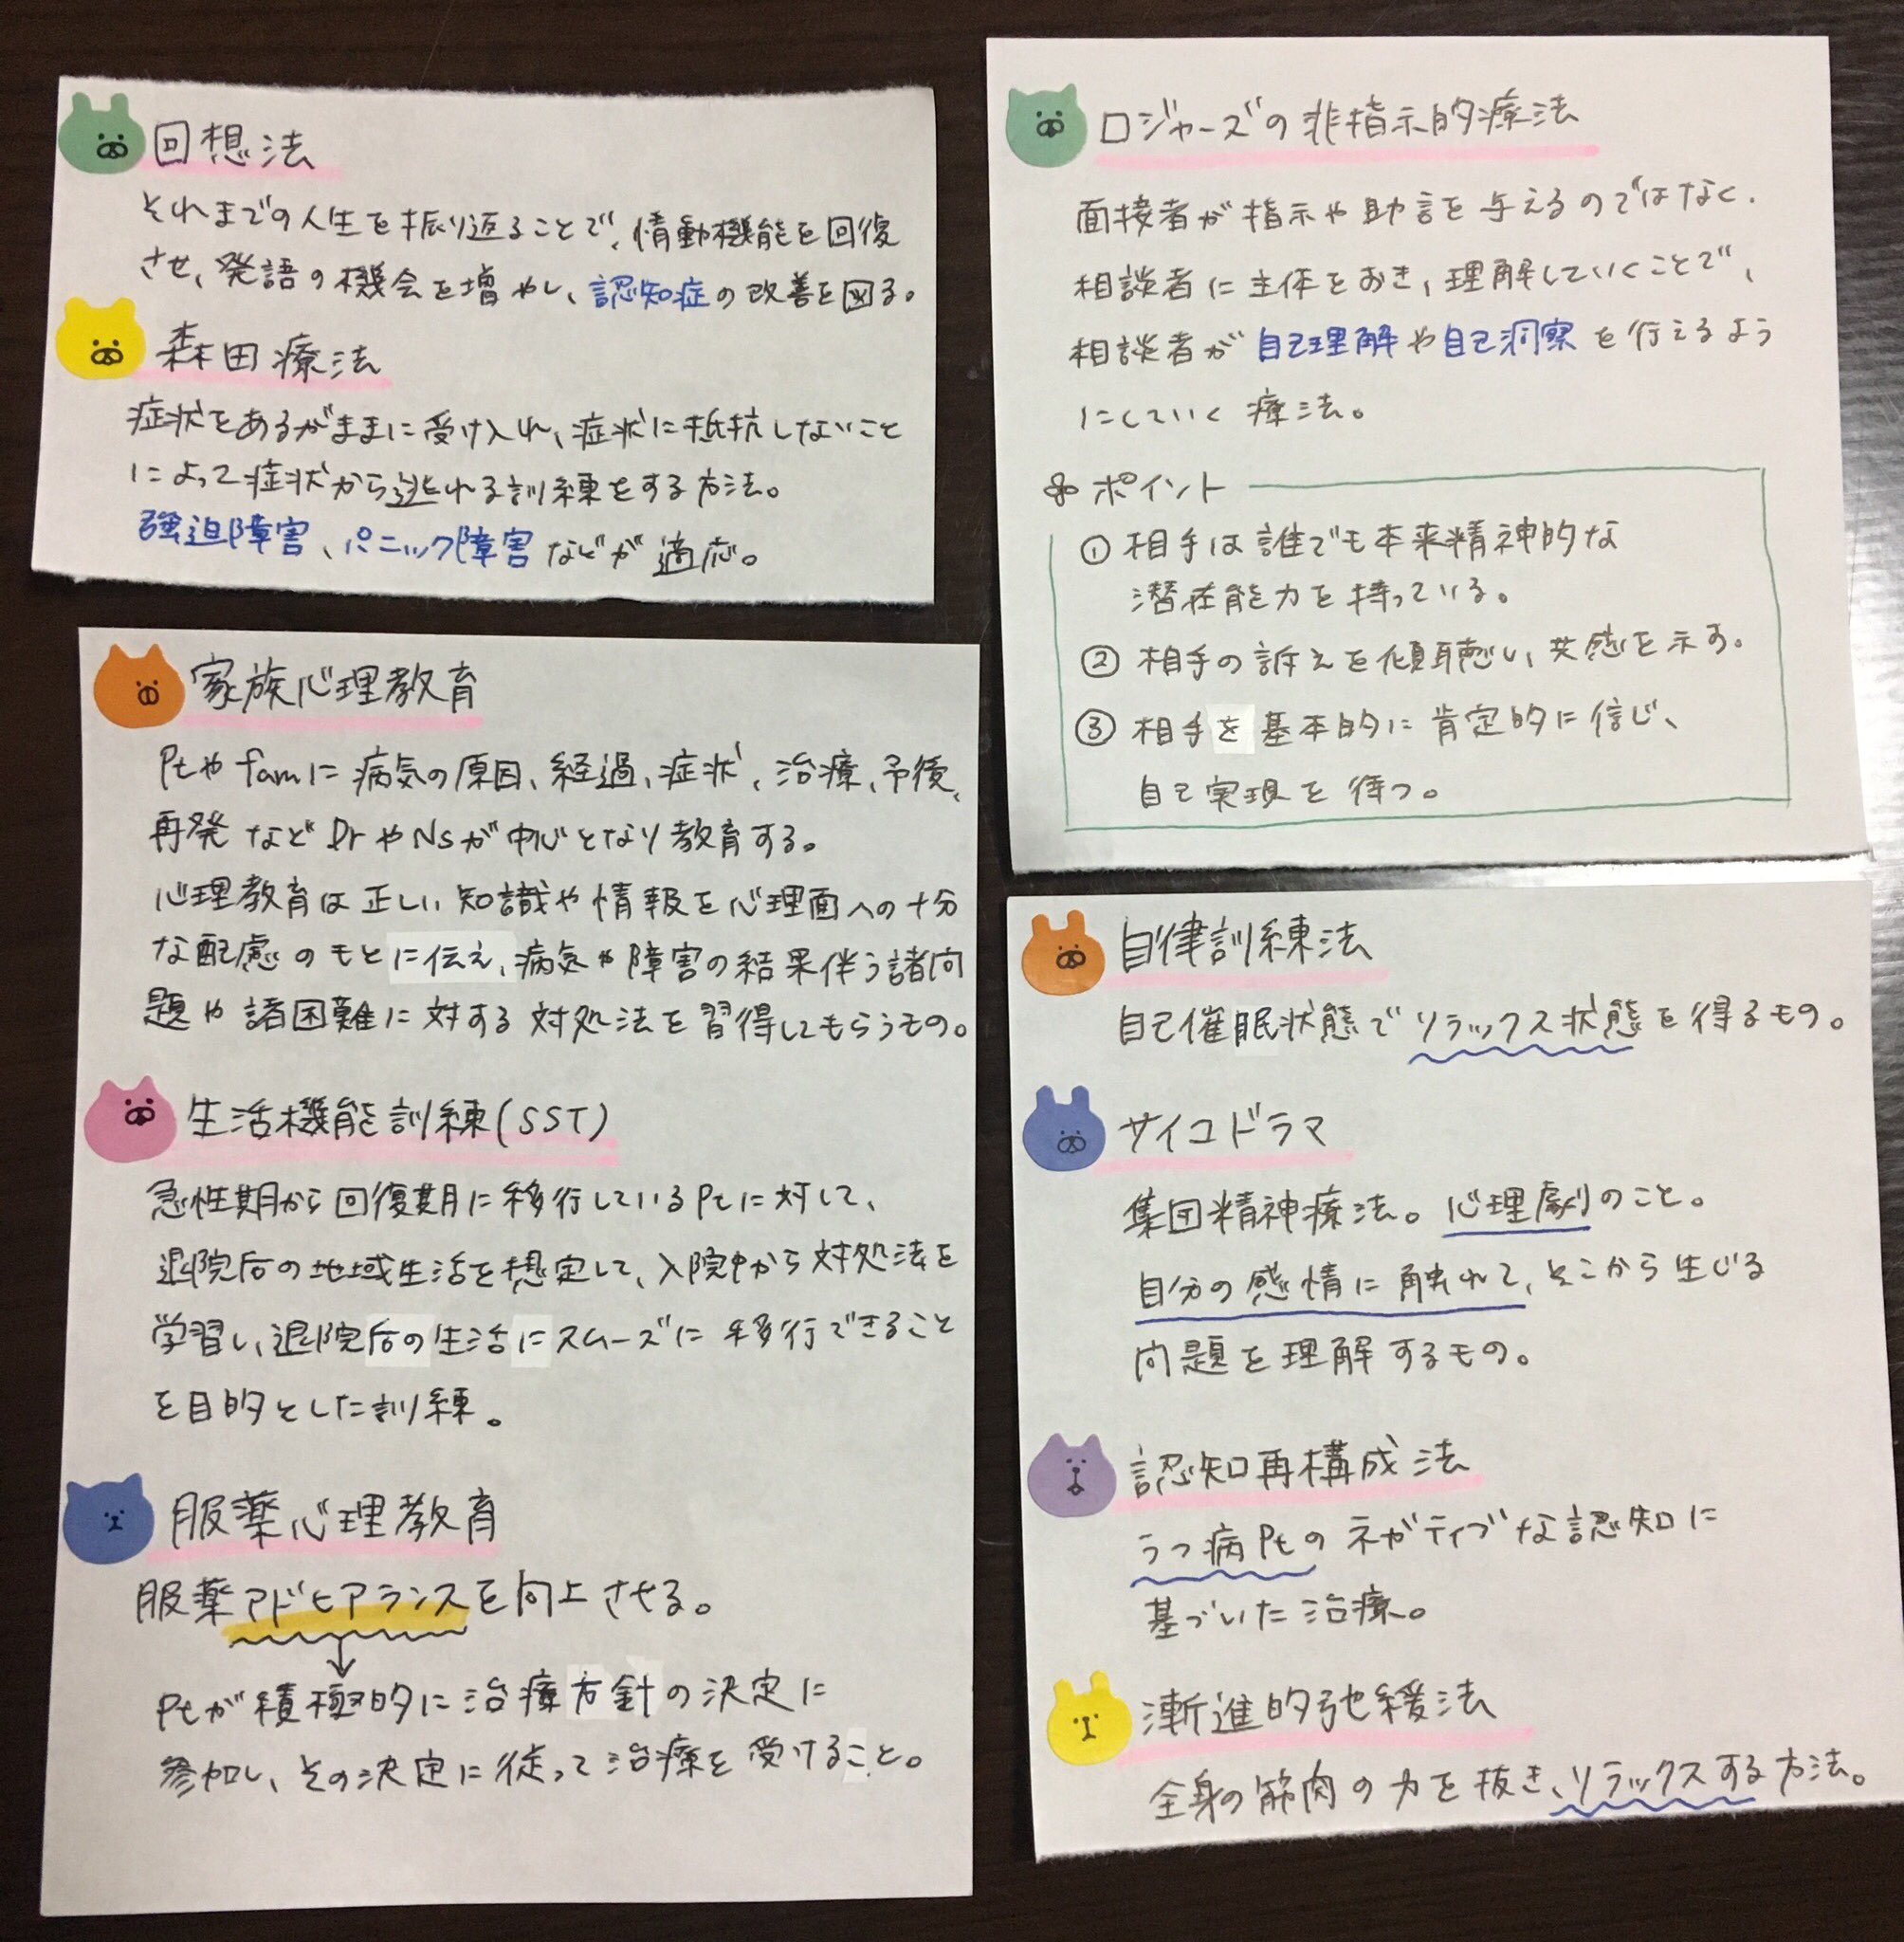 回想法
それまでの人生を振り返ることで、情動機能を回復
させ、発語の機会を増やし、認知症の改善を図る。
森田療法
症状をあるがままに受け入れ、症状に抵抗しないこと
によって症状から逃れる訓練をする方法。
強迫障害、パニック障害などが適応。
家族心理教育
Ptやfamに病気の原因、経過、症状、治療、予後、
再発などDrやNsが中心となり教育する。
心理教育は正しい知識や情報を心理面への十分
な配慮のもとに伝え、病気や障害の結果伴う諸問
題や諸困難に対する対処法を習得してもらうもの。
生活機能訓練(SST)
急性期から回復期に移行しているPtに対して、
退院后の地域生活を想定して、入院中から対処法を
学習し、退院后の生活にスムーズに移行できること
を目的とした訓練。
服薬心理教育
服薬アドヒアランスを向上させる。
↓
Ptが積極的に治療方針の決定に
参加し、その決定に従って治療を受けること。
ロジャーズの非指示的療法
面接者が指示や助言を与えるのではなく、
相談者に主体をおき、理解していくことで、
相談者が自己理解や自己洞察を行えるよう
にしていく療法。
ポイント
① 相手は誰でも本来精神的な
潜在能力を持っている。
② 相手の訴えを傾聴し、共感を示す。
③ 相手を基本的に肯定的に信じ、
自己実現を待つ。
自律訓練法
自己催眠状態でリラックス状態を得るもの。
サイコドラマ
集団精神療法。心理劇のこと。
自分の感情に触れて、そこから生じる
問題を理解するもの。
認知再構成法
うつ病Ptのネガティブな認知に
基づいた治療。
漸進的弛緩法
全身の筋肉の力を抜き、リラックスする方法。